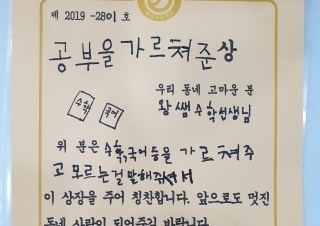 제 2019 -2801 호
공부을 가르쳐준상
우리 동네 고마운 분
왕쌤수학선생님
수학
국어
위 분은 수학,국어등을 가르쳐주
고 모르는걸 말해주셔서
이 상장을 주어 칭찬합니다. 앞으로도 멋진
동네 사람이 되어주길 바랍니다.